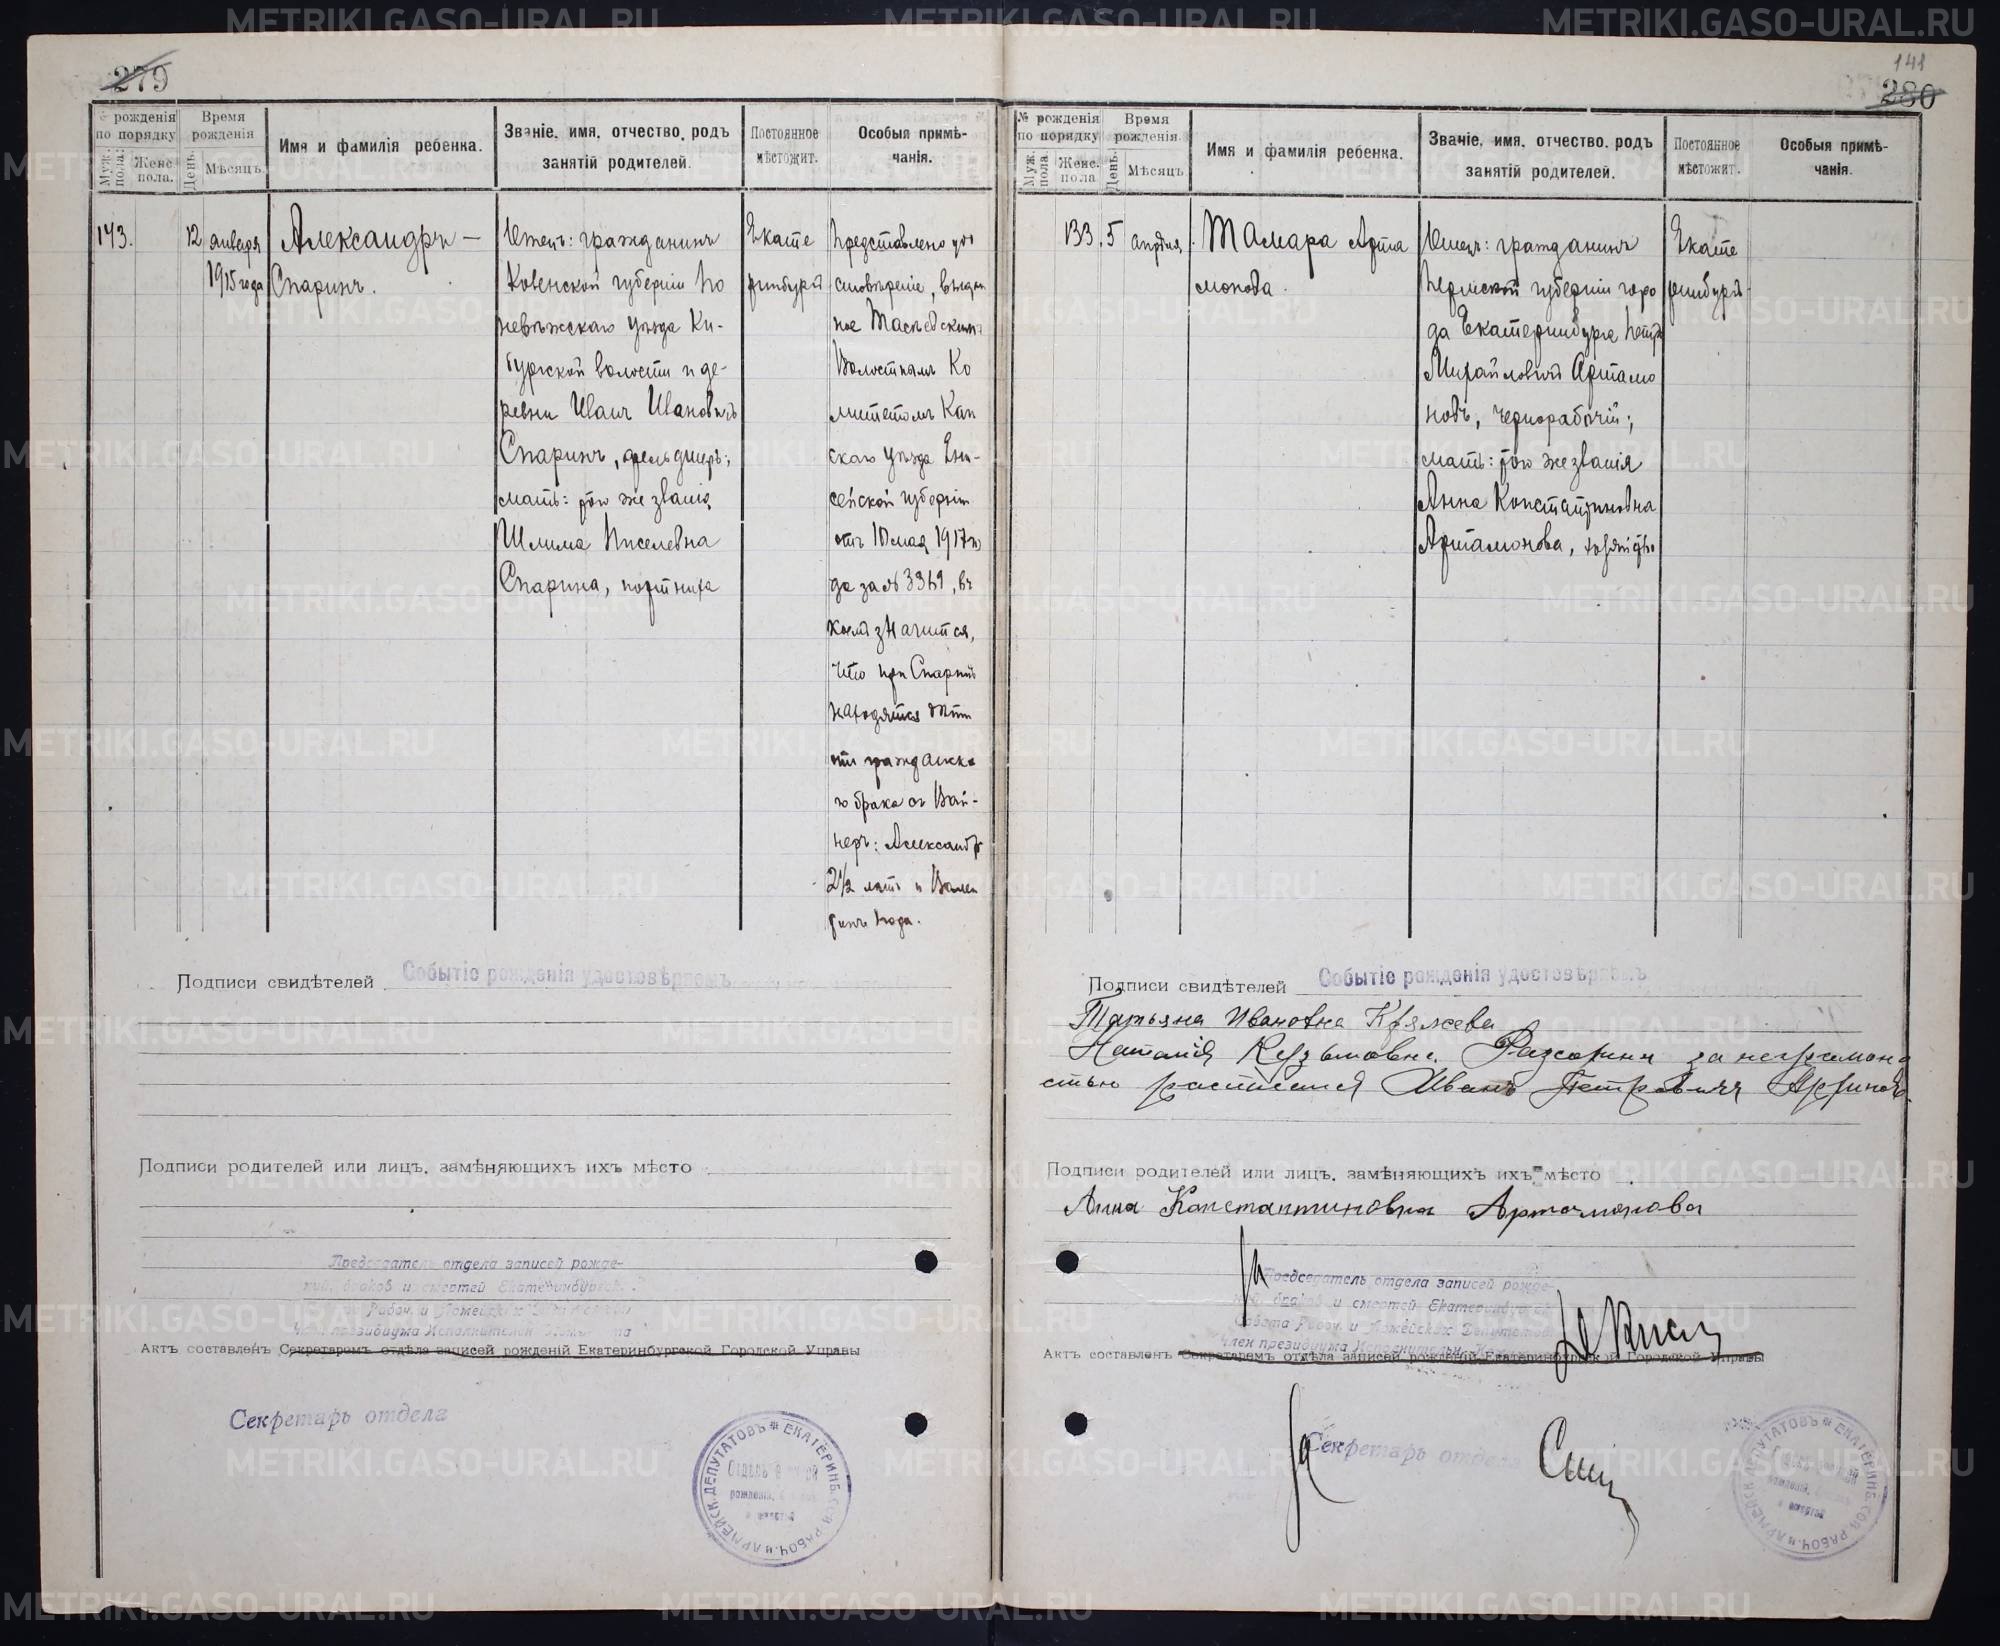 279
№ рожденія по порядку
Муж. пола.
Женс. пола.
Время рожденія
День.
Мѣсяцъ.
Имя и фамилія ребенка.
Званіе, имя, отчество, родъ занятій родителей.
Постоянное мѣстожит.
Особыя примѣчанія.
143.
12
января
1915 года
Александръ —
Спаринъ.
Отецъ: гражданинъ
Ковенской губерніи По
невѣжскаго уѣзда
волости и де-
ревни Иванъ Ивановичъ
Спаринъ, фельдшеръ;
мать: того же званія
Шлима
Спарина, портниха
Екате
ринбургъ
Представлено удо
стовѣреніе, выдан
ное Тасѣевскимъ
Волостнымъ Ко
митетомъ Кан
скаго уѣзда Ени-
сейской губерніи
отъ 10 мая 1917 го
да за №, въ
коемъ значится,
что при Спаринѣ
находятся дѣти
отъ гражданска
го брака съ Вай-
неръ: Александръ
2½ лѣтъ и Вален
тинъ 1 года.
Подписи свидѣтелей Событіе рожденія удостовѣряемъ
Подписи родителей или лицъ, замѣняющихъ ихъ мѣсто
Председатель отдела записей рожде-
ний, браков и смертей Екатеринбургск.
Рабоч. и Армейских Депутатов
Член президиума Исполнительн. Комитета
Актъ составленъ Секретаремъ отдѣла записей рожденій Екатеринбургской Городской Управы
Секретарь отдела
ЕКАТЕРИНБ. СОВ. РАБОЧ. и АРМЕЙСК. ДЕПУТАТОВЪ
Отделъ записей рожденій, браковъ и смертей
141
280
№ рожденія по порядку
Муж. пола.
Женс. пола
Время рожденія.
День.
Мѣсяцъ.
Имя и фамилія ребенка.
Званіе, имя, отчество, родъ занятій родителей.
Постоянное мѣстожит.
Особыя примѣчанія.
133.
5
апрѣля
Тамара Арта
монова.
Отецъ: гражданинъ
Пермской губерніи горо
да Екатеринбурга Петръ
Михайловичъ Артамо
новъ, чернорабочій;
мать: того же званія
Анна Константиновна
Артамонова,
Екате
ринбургъ
Подписи свидѣтелей Событіе рожденія удостовѣряемъ
Татьяна Ивановна Кряжева
Наталія Кузьмовна за неграмотно
стью росписался Иванъ Петровичъ
Подписи родителей или лицъ, замѣняющихъ ихъ мѣсто
Анна Константиновна Артамонова
За
Председатель отдела записей рожде-
ний, браков и смертей Екатеринбургск.
Совета Рабоч. и Армейских Депутатов
Член президиума Исполнительн. Комитета
Актъ составленъ Секретаремъ отдѣла записей рожденій Екатеринбургской Городской Управы
За Секретарь отдела
ЕКАТЕРИНБ. СОВ. РАБОЧ. и АРМЕЙСК. ДЕПУТАТОВЪ
METRIKI.GASO-URAL.RU